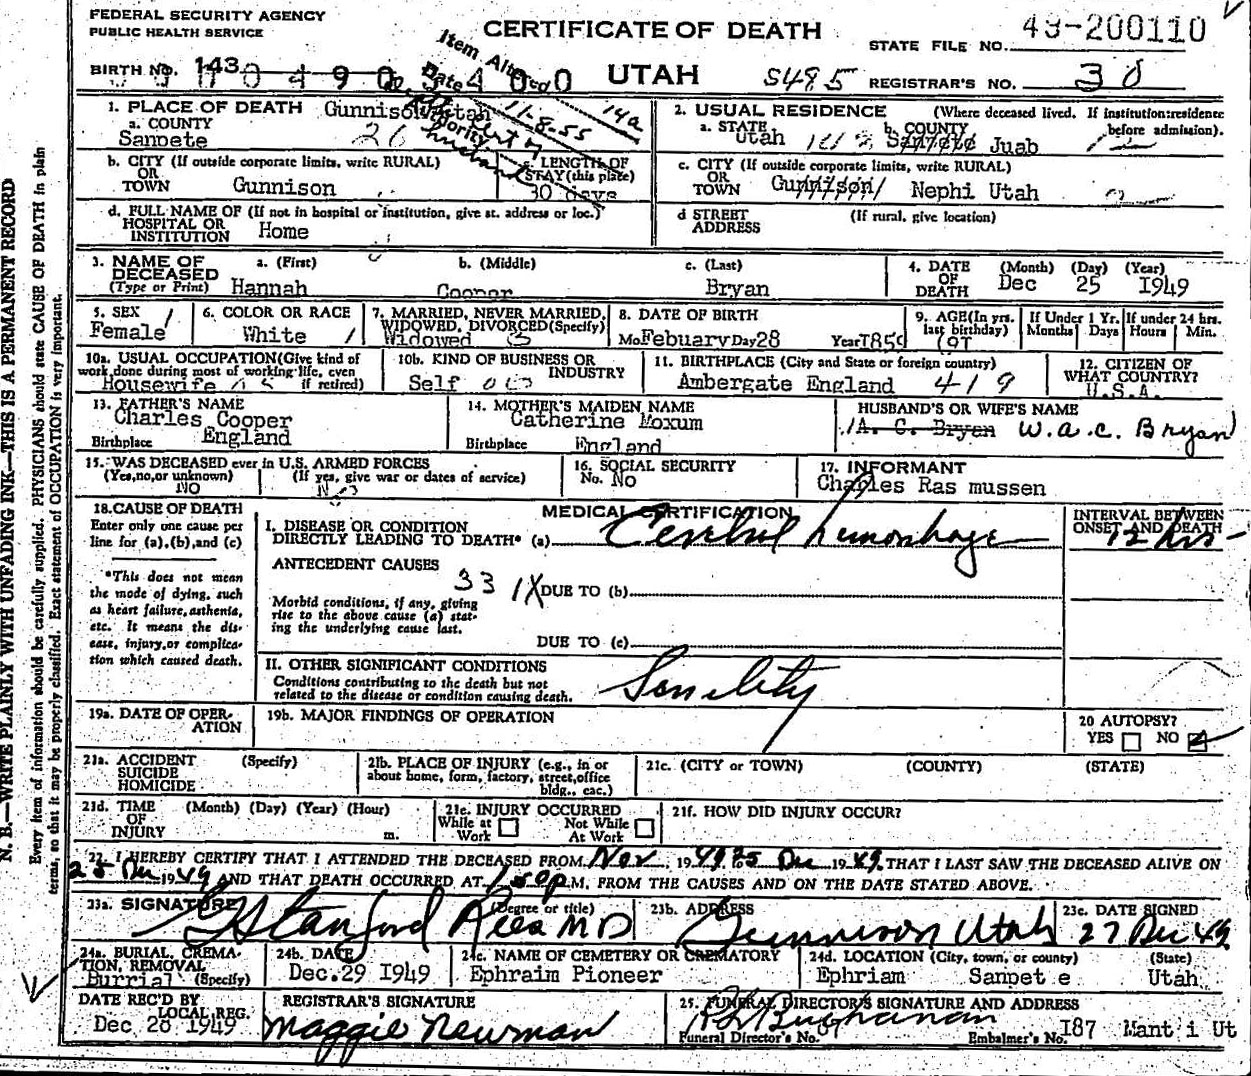 FEDERAL SECURITY AGENCY
PUBLIC HEALTH SERVICE
CERTIFICATE OF DEATH
STATE FILE NO. 49-200110
BIRTH NO. 143
UTAH S485 REGISTRAR'S NO. 30
Item Altered 14a
Date 11-8-55
Authority
1. PLACE OF DEATH Gunnison Utah
a. COUNTY
Sanpete 26
2. USUAL RESIDENCE (Where deceased lived. If institution:residence before admission).
a. STATE Utah b. COUNTY Sanpete Juab
b. CITY (If outside corporate limits, write RURAL)
OR TOWN Gunnison
c. LENGTH OF STAY (this place)
30 days
c. CITY (If outside corporate limits, write RURAL)
OR TOWN Gunnison Nephi Utah
d. FULL NAME OF (If not in hospital or institution, give st. address or loc.)
HOSPITAL OR INSTITUTION Home
d STREET ADDRESS (If rural, give location)
3. NAME OF DECEASED (Type or Print)
a. (First) b. (Middle) c. (Last)
Hannah Cooper Bryan
4. DATE OF DEATH (Month) (Day) (Year)
Dec 25 1949
5. SEX
Female
6. COLOR OR RACE
White
7. MARRIED, NEVER MARRIED, WIDOWED, DIVORCED(Specify)
Widowed
8. DATE OF BIRTH
Mo Febuary Day 28 Year 185
9. AGE(In yrs. last birthday)
91
If Under 1 Yr. Months Days
If under 24 hrs. Hours Min.
10a. USUAL OCCUPATION(Give kind of work done during most of working life, even if retired)
Housewife
10b. KIND OF BUSINESS OR INDUSTRY
Self
11. BIRTHPLACE (City and State or foreign country)
Ambergate England 419
12. CITIZEN OF WHAT COUNTRY?
U.S.A.
13. FATHER'S NAME
Charles Cooper
Birthplace England
14. MOTHER'S MAIDEN NAME
Catherine Moxum
Birthplace England
HUSBAND'S OR WIFE'S NAME
A. C. Bryan W.A.C. Bryan
15. WAS DECEASED ever in U.S. ARMED FORCES
(Yes,no,or unknown) (If yes, give war or dates of service)
NO
16. SOCIAL SECURITY
No. No
17. INFORMANT
Charles Ras mussen
18. CAUSE OF DEATH
Enter only one cause per line for (a),(b),and (c)
*This does not mean the mode of dying, such as heart failure, asthenia, etc. It means the disease, injury,or complication which caused death.
MEDICAL CERTIFICATION
I. DISEASE OR CONDITION
DIRECTLY LEADING TO DEATH* (a) Cerebral hemorrhage
INTERVAL BETWEEN ONSET AND DEATH
12 hrs
ANTECEDENT CAUSES
331X DUE TO (b)
Morbid conditions, if any, giving rise to the above cause (a) stating the underlying cause last.
DUE TO (c)
II. OTHER SIGNIFICANT CONDITIONS
Conditions contributing to the death but not related to the disease or condition causing death.
Senility
19a. DATE OF OPERATION
19b. MAJOR FINDINGS OF OPERATION
20 AUTOPSY?
YES NO
21a. ACCIDENT (Specify)
SUICIDE
HOMICIDE
21b. PLACE OF INJURY (e.g., in or about home, form, factory, street,office bldg., eac.)
21c. (CITY or TOWN) (COUNTY) (STATE)
21d. TIME OF INJURY (Month) (Day) (Year) (Hour) m.
21e. INJURY OCCURRED
While at Work Not While At Work
21f. HOW DID INJURY OCCUR?
22. I HEREBY CERTIFY THAT I ATTENDED THE DECEASED FROM Nov, 1949, to 25 Dec, 1949, THAT I LAST SAW THE DECEASED ALIVE ON
25 Dec 1949 AND THAT DEATH OCCURRED AT 1:50 P M. FROM THE CAUSES AND ON THE DATE STATED ABOVE.
23a. SIGNATURE (Degree or title)
G Stanford Rees MD
23b. ADDRESS
Gunnison Utah
23c. DATE SIGNED
27 Dec 49
24a. BURIAL, CREMATION, REMOVAL (Specify)
Burrial
24b. DATE
Dec.29 1949
24c. NAME OF CEMETERY OR CREMATORY
Ephraim Pioneer
24d. LOCATION (City, town, or county) (State)
Ephriam Sanpet e Utah
DATE REC'D BY LOCAL REG.
Dec 28 1949
REGISTRAR'S SIGNATURE
Maggie Newman
25. FUNERAL DIRECTOR'S SIGNATURE AND ADDRESS
Buchanan
Funeral Director's No. 87 Embalmer's No. 187 Mant i Ut
N. B.—WRITE PLAINLY WITH UNFADING INK—THIS IS A PERMANENT RECORD
Every item of information should be carefully supplied. PHYSICIANS should state CAUSE OF DEATH in plain
terms, so that it may be properly classified. Exact statement of OCCUPATION is very important.